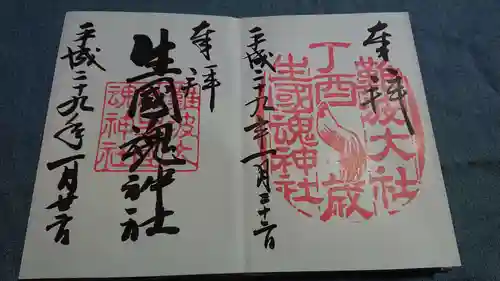 奉拝
難波大社
丁酉歳
生國魂神社
平成二十九年一月二十二日
奉拝
生國魂神社
難波大社
生國魂神社
平成二十九年一月廿二日